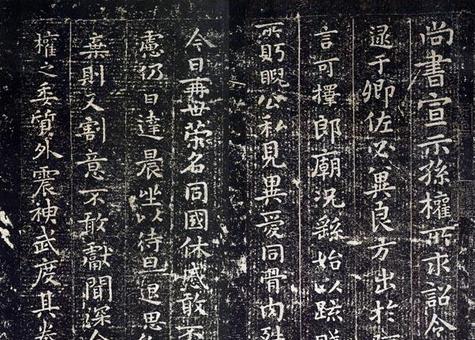 尚書宣示孫權所求詔令
逮于卿佐必冀良方出於
言可擇郎廟況繇始以疏賤
所盱睨公私見異愛同骨肉殊
今日再世榮名同國休慼敢不
慮仍日達晨坐以待旦退思
棄則又割意不敢獻聞深
權之委質外震神武度其拳